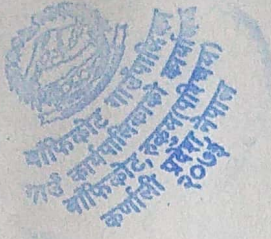 बाँफिकोट गाउँपालिका
गाउँ कार्यपालिकाको कार्यालय
बाँफिकोट, रुकुम (पश्चिम)
कर्णाली प्रदेश, नेपाल
२०७३